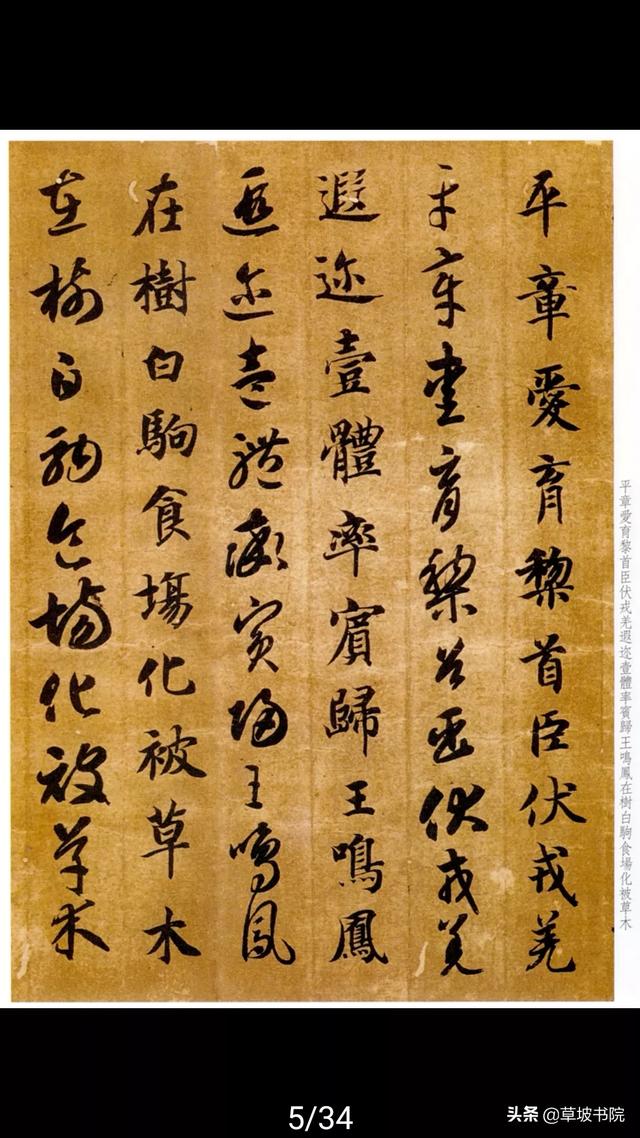 平章愛育黎首臣伏戎羌
平章愛育黎首臣伏戎羌
遐迩壹體率賓歸王鳴鳳
遐迩壹體率賓歸王鳴鳳
在樹白駒食場化被草木
在樹白駒食場化被草木
平章愛育黎首臣伏戎羌遐迩壹體率賓歸王鳴鳳在樹白駒食場化被草木
5/34
头条 @草坡书院